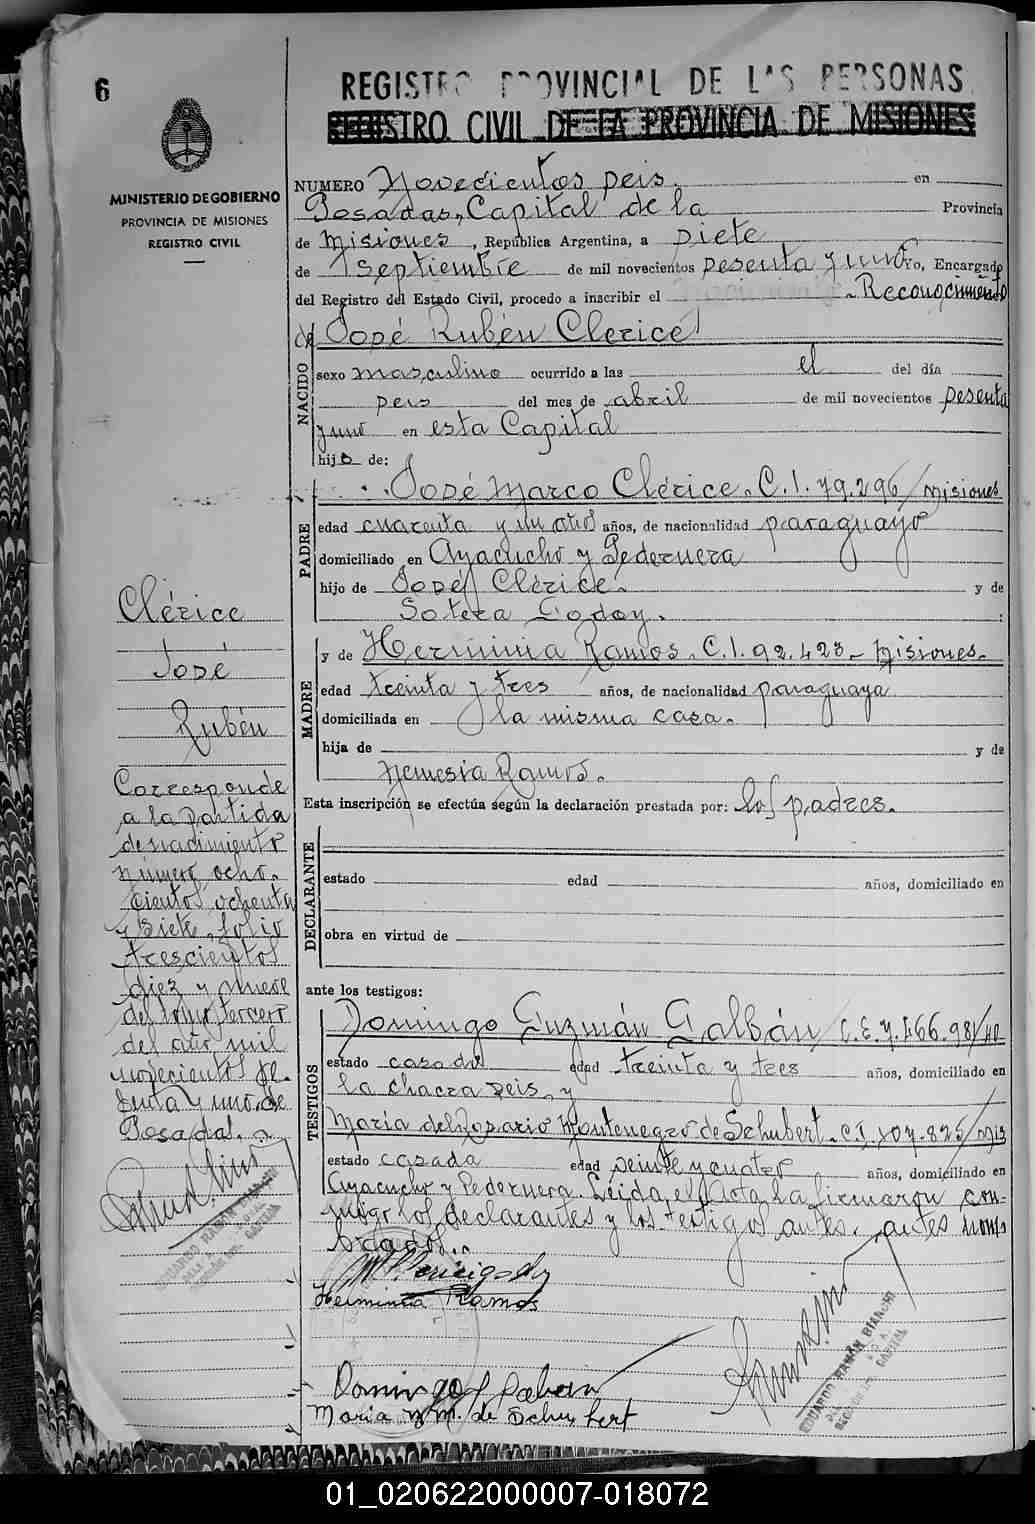 6
REGISTRO PROVINCIAL DE LAS PERSONAS
REGISTRO CIVIL DE LA PROVINCIA DE MISIONES
MINISTERIO DE GOBIERNO
PROVINCIA DE MISIONES
REGISTRO CIVIL
NUMERO Novecientos seis. en
Posadas, Capital de la Provincia
de Misiones, República Argentina, a siete
de septiembre de mil novecientos sesenta y uno yo, Encargado
del Registro del Estado Civil, procedo a inscribir el Reconocimiento
de José Rubén Clérice
NACIDO
sexo masculino ocurrido a las el del día
seis del mes de abril de mil novecientos sesenta
y uno en esta Capital
hijo de:
PADRE
José Marco Clérice. C.I. 79.296/Misiones
edad cuarenta y un años años, de nacionalidad paraguayo
domiciliado en Ayacucho y Pedernera
hijo de José Clérice. y de
Sotera Godoy.
MADRE
y de Herminia Ramos. C.I. 92.423- Misiones.
edad treinta y tres años, de nacionalidad paraguaya
domiciliada en la misma casa.
hija de y de
Nemesia Ramos.
Esta inscripción se efectúa según la declaración prestada por: los padres.
DECLARANTE
estado edad años, domiciliado en
obra en virtud de
ante los testigos:
TESTIGOS
Domingo Guzmán Galbán
estado casado edad treinta y tres años, domiciliado en
la chacra seis, y
María del Rosario Montenegro de Schubert. C.I. 107.825/Mis
estado casada edad veinte y cuatro años, domiciliado en
Ayacucho y Pedernera. Leída el Acta, la firmaron con-
migo los declarantes y los testigos antes. antes nom-
brados.
Herminia Ramos
Domingo Galban
Maria M. de Schubert
EDUARDO RAMÓN BIANCHI
CAPITAL
Clérice
José
Rubén
Corresponde
a la partida
de nacimiento
número ocho-
cientos ochenta
y siete, folio
trescientos
diez y nueve
del tomo tercero
del año mil
novecientos se-
senta y uno, de
Posadas.
EDUARDO RAMÓN
CAPITAL
01_020622000007-018072